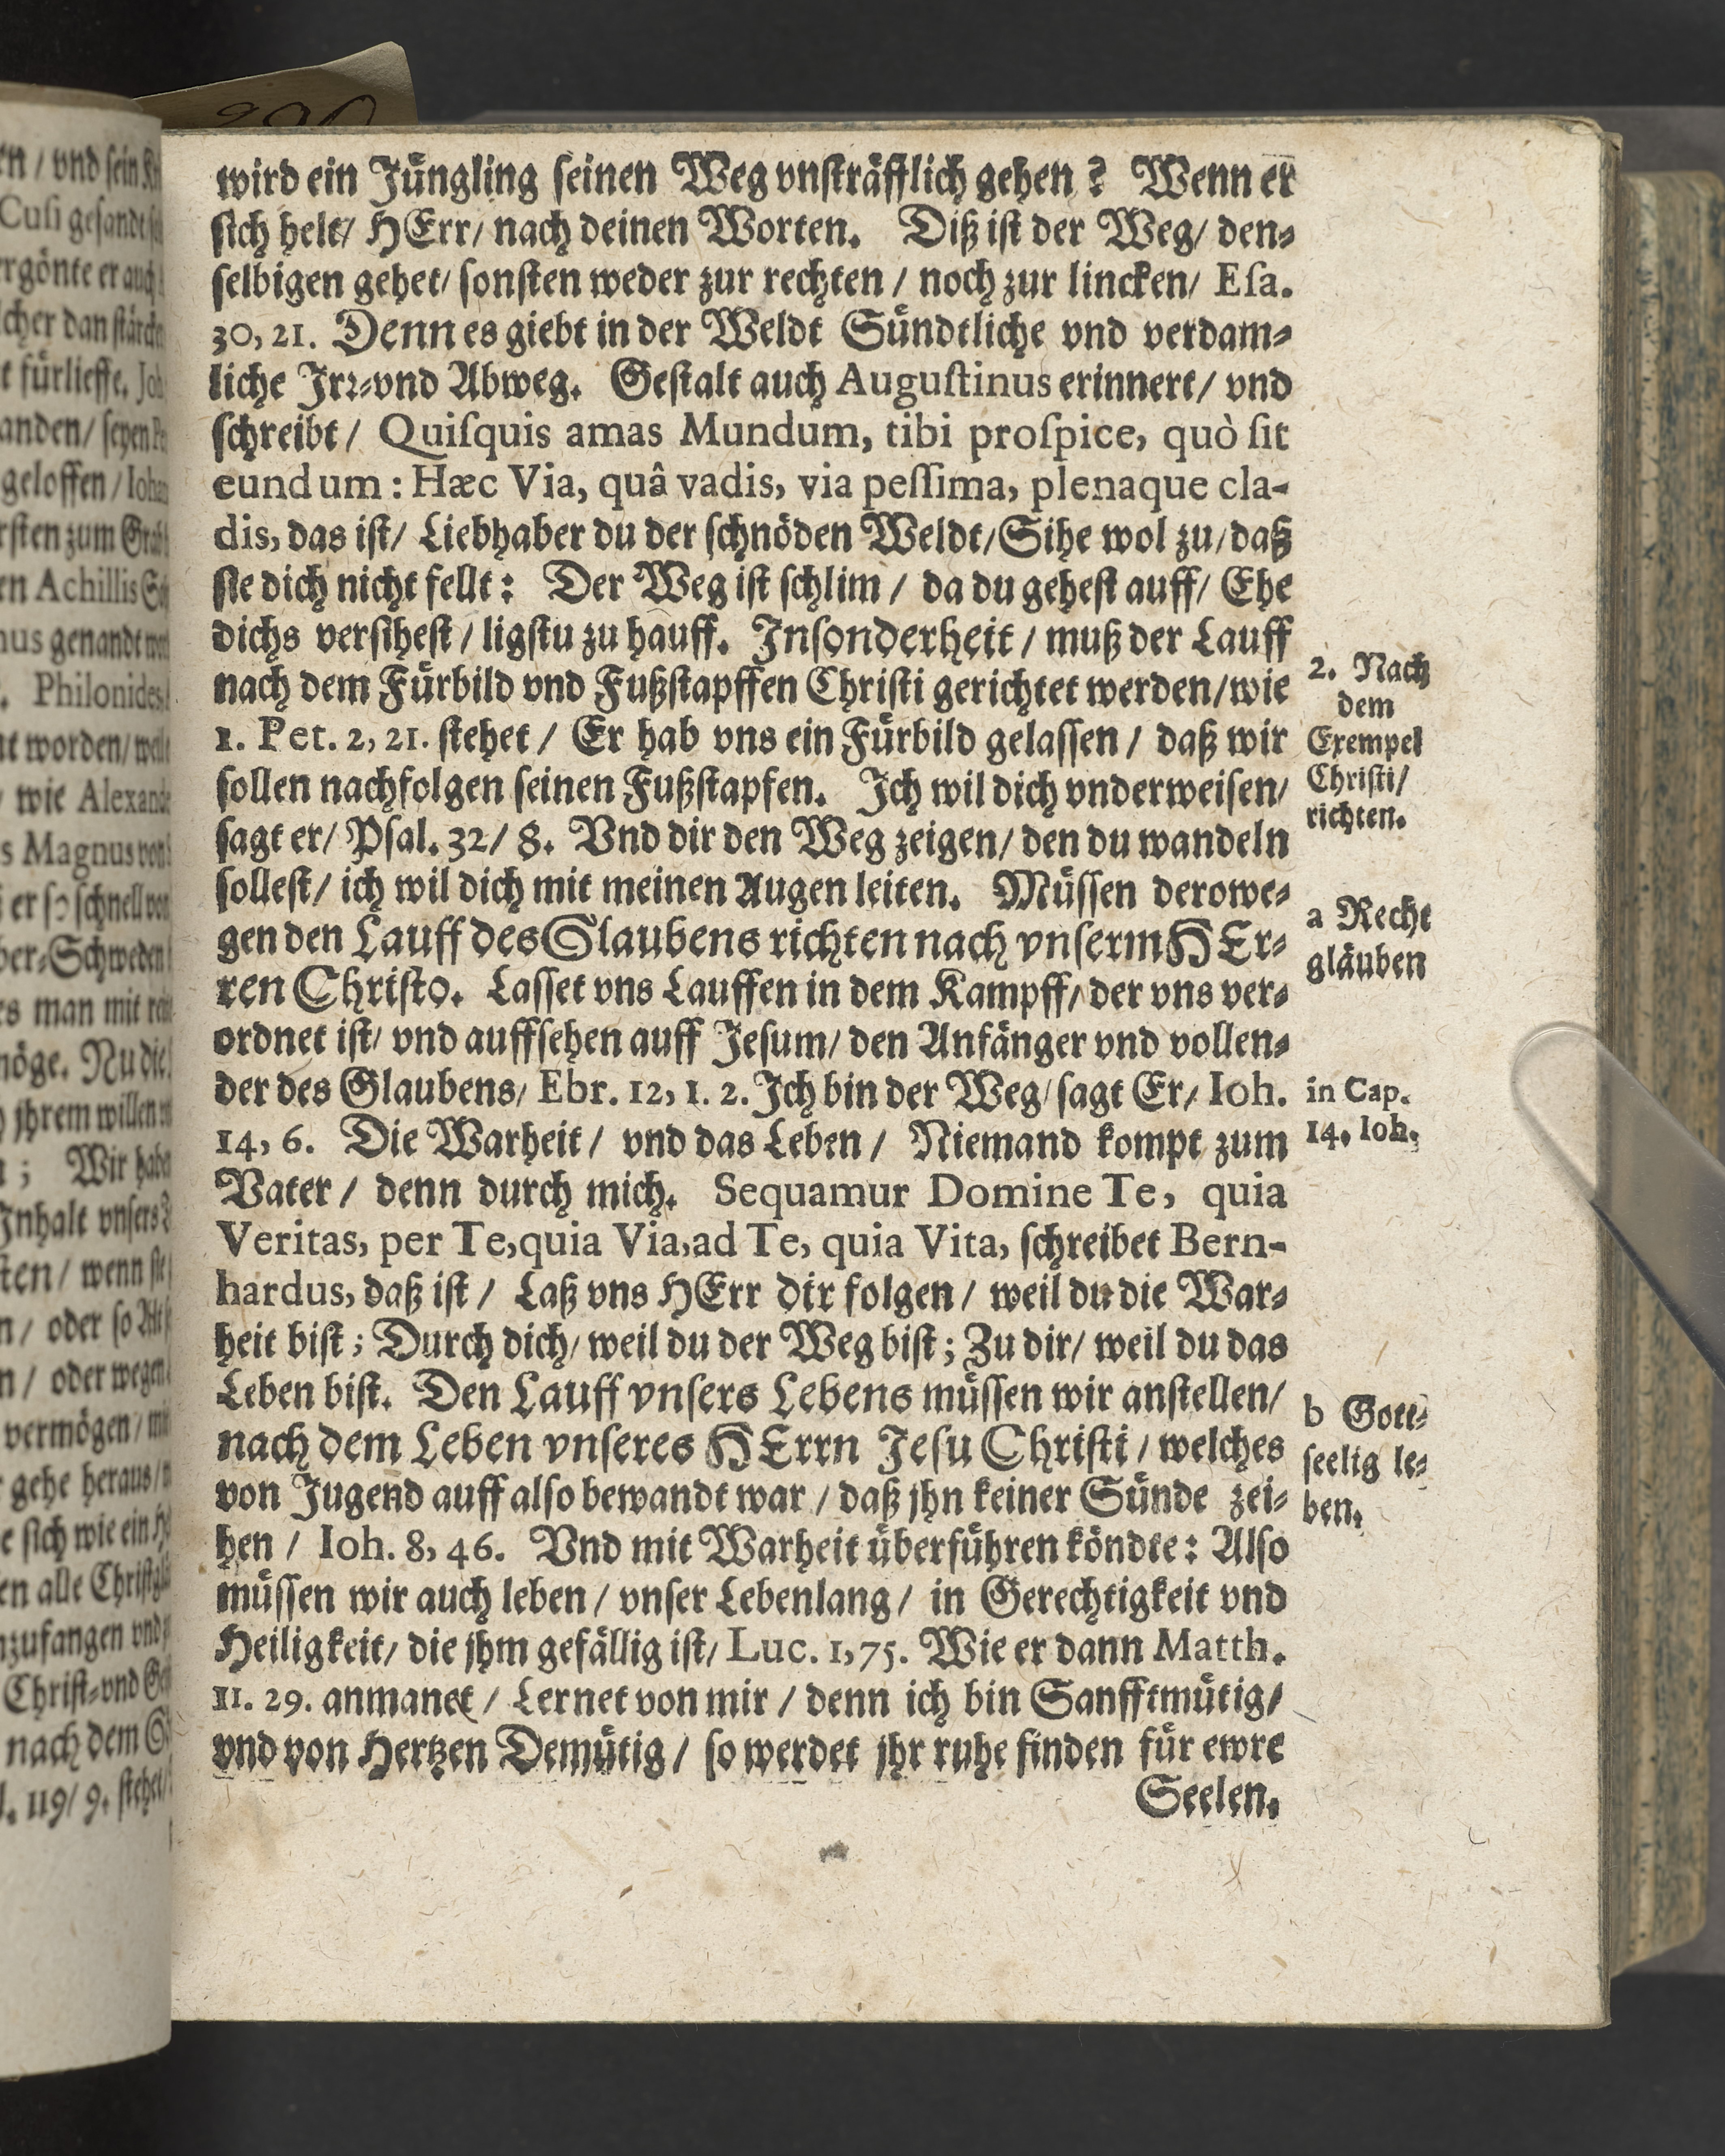 wird ein Jüngling seinen Weg vnsträfflich gehen? Wenn er
sich helt/ HErr/ nach deinen Worten. Diß ist der Weg/ den-
selbigen gehet/ sonsten weder zur rechten / noch zur lincken/ Esa.
30, 21. Denn es giebt in der Weldt Sündtliche vnd verdam-
liche Irr-vnd Abweg. Gestalt auch Augustinus erinnert/ vnd
schreibt/ Quisquis amas Mundum, tibi prospice, quò sit
eundum: Hæc Via, quâ vadis, via pessima, plenaque cla-
dis, das ist/ Liebhaber du der schnöden Weldt/ Sihe wol zu/ daß
sie dich nicht fellt: Der Weg ist schlim / da du gehest auff/ Ehe
dichs versihest / ligstu zu hauff. Insonderheit / muß der Lauff
nach dem Fürbild vnd Fußstapffen Christi gerichtet werden/wie
1. Pet. 2, 21. stehet / Er hab vns ein Fürbild gelassen / daß wir
sollen nachfolgen seinen Fußstapfen. Ich wil dich vnderweisen/
sagt er/ Psal. 32/ 8. Vnd dir den Weg zeigen/ den du wandeln
sollest/ ich wil dich mit meinen Augen leiten. Müssen derowe-
gen den Lauff des Glaubens richten nach vnserm HEr-
ren Christo. Lasset vns Lauffen in dem Kampff/ der vns ver-
ordnet ist/ vnd auffsehen auff Jesum/ den Anfänger vnd vollen-
der des Glaubens/ Ebr. 12, 1. 2. Ich bin der Weg/ sagt Er/ Ioh.
14, 6. Die Warheit / vnd das Leben / Niemand kompt zum
Vater / denn durch mich. Sequamur Domine Te, quia
Veritas, per Te, quia Via, ad Te, quia Vita, schreibet Bern-
hardus, daß ist / Laß vns HErr dir folgen / weil du die War-
heit bist; Durch dich/ weil du der Weg bist; Zu dir/ weil du das
Leben bist. Den Lauff vnsers Lebens müssen wir anstellen/
nach dem Leben vnseres HErrn Jesu Christi / welches
von Jugend auff also bewandt war / daß jhn keiner Sünde zei-
hen / Ioh. 8, 46. Vnd mit Warheit überführen köndte: Also
müssen wir auch leben / vnser Lebenlang / in Gerechtigkeit vnd
Heiligkeit/ die jhm gefällig ist/ Luc. 1, 75. Wie er dann Matth.
11. 29. anmanet / Lernet von mir / denn ich bin Sanfftmütig/
vnd von Hertzen Demütig / so werdet jhr ruhe finden für ewre
Seelen.
2. Nach
dem
Exempel
Christi/
richten.
a Recht
gläuben
in Cap.
14. Ioh.
b Gott-
seelig le-
ben.